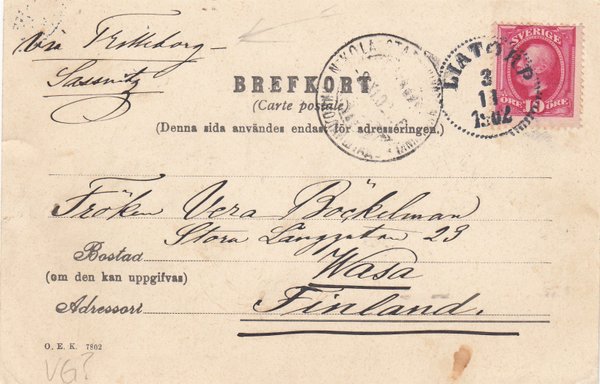 via Trelleborg –
Sassnitz
BREFKORT
(Carte postale)
(Denna sida användes endast för adresseringen.)
NIKOLAISTAD
LIATORP
3
11
1902
SVERIGE
ÖRE 10 ÖRE
Fröken Vera Böckelman
Stora Långgatan 23
Bostad
(om den kan uppgifvas)
Wasa
Adressort
Finland.
O. E. K. 7802
VG?